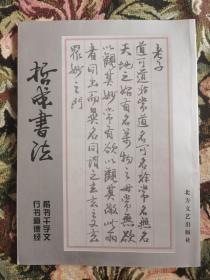 老子
道可道非常道名可名非常名無名
天地之始有名萬物之母常無欲
以觀其妙常有欲以觀其徼此兩
者同出而異名同謂之玄玄之又玄
眾妙之門
哲成书法
楷书千字文
行书道德经
北方文艺出版社